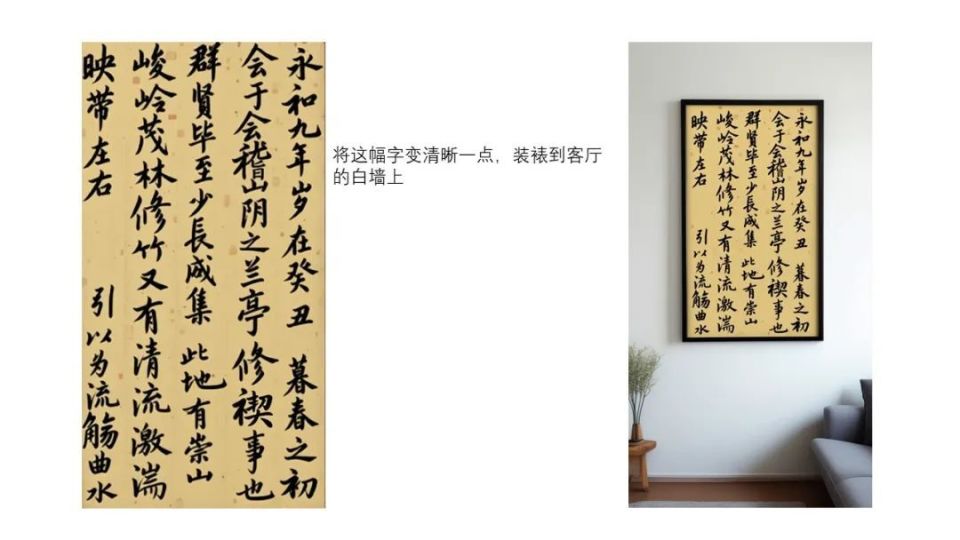 永和九年岁在癸丑 暮春之初
会于会稽山阴之兰亭 修禊事也
群贤毕至少長咸集 此地有崇山
峻岭茂林修竹又有清流激湍
映带左右 引以为流觞曲水
将这幅字变清晰一点，装裱到客厅
的白墙上
永和九年岁在癸丑 暮春之初
会于会稽山阴之兰亭 修禊事也
群贤毕至少長咸集 此地有崇山
峻岭茂林修竹又有清流激湍
映带左右 引以为流觞曲水